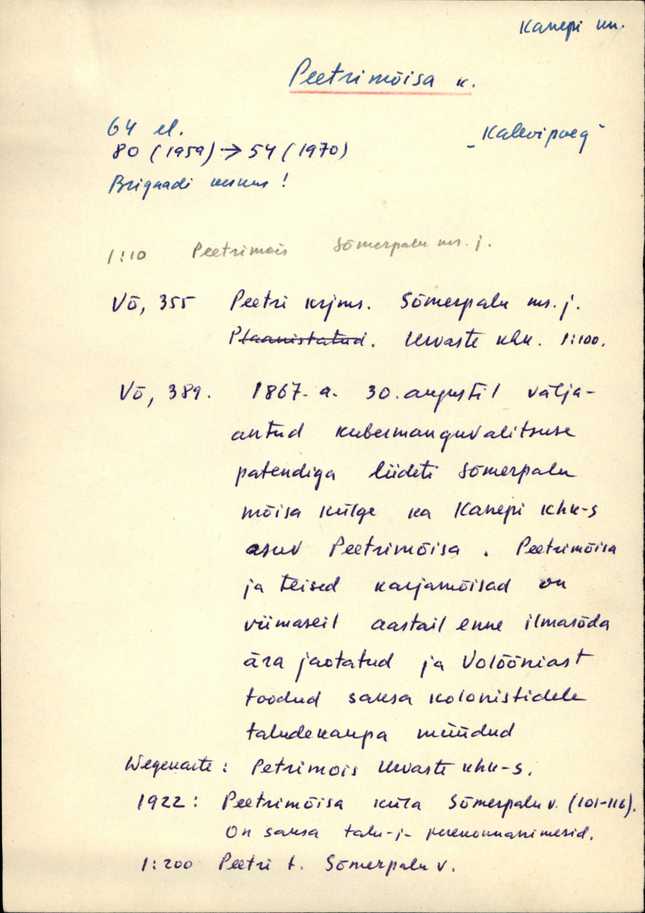 Kanepi kn.
Peetrimõisa k.
64 el.
80 (1959) → 54 (1970)
„Kalevipoeg"
Brigaadi keskus!
1:10 Peetrimois Sõmerpalu ms. j.
Võ, 355 Peetri krjms. Sõmerpalu ms. j.
Plaanistatud. Urvaste khk. 1:100.
Võ, 389. 1867. a. 30. augustil välja-
antud kubermanguvalitsuse
patendiga liideti Sõmerpalu
mõisa külge ka Kanepi khk-s
asuv Peetrimõisa. Peetrimõisa
ja teised karjamõisad on
viimaseil aastail enne ilmasõda
ära jaotatud ja Volõõniast
toodud saksa kolonistidele
taludekaupa müüdud
Wegekarte: Petrimois Urvaste khk-s.
1922: Peetrimõisa küla Sõmerpalu v. (101-116).
On saksa talu-j- perekonnanimesid.
1:200 Peetri t. Sõmerpalu v.